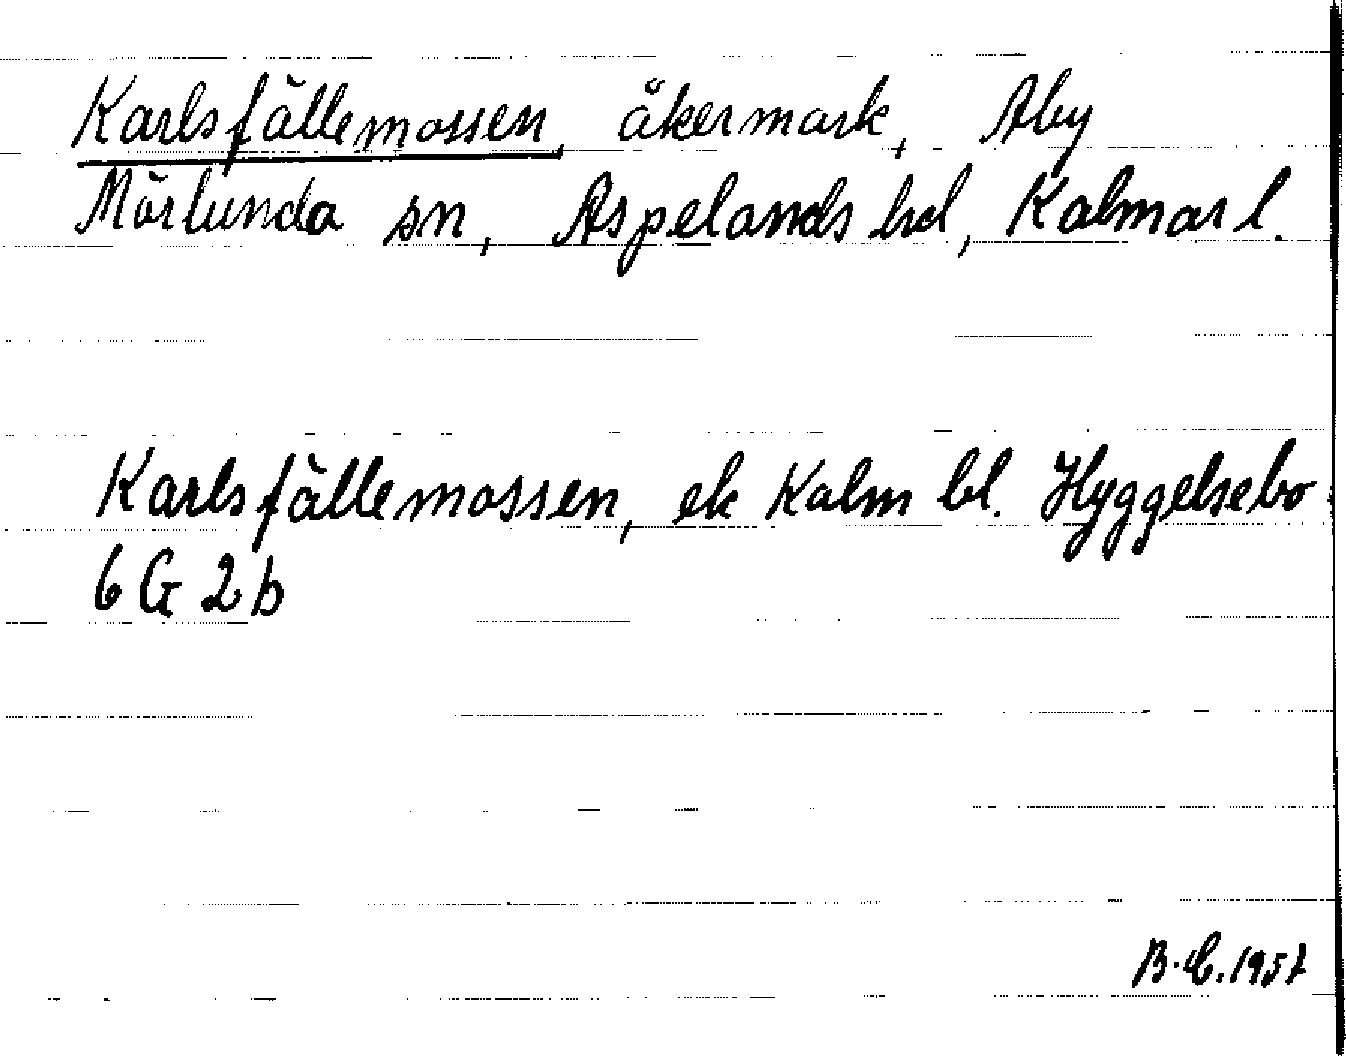 Karlsfällemossen, åkermark, Åby
Mörlunda sn, Aspelands hd, Kalmar l.
Karlsfällemossen, ek Kalm bl. Hyggelsebo
6 G 2b
B.C. 1957